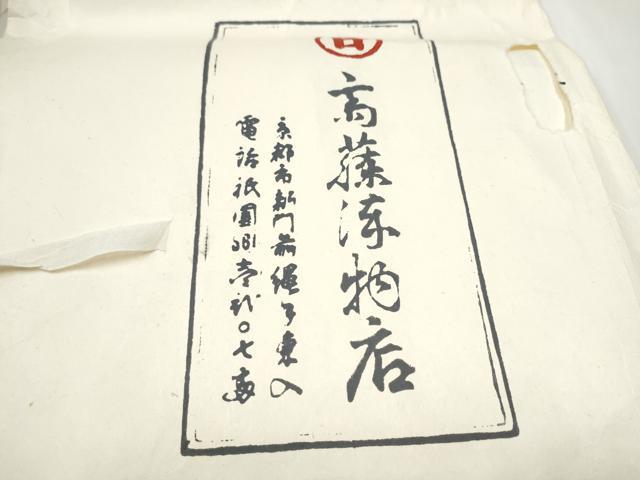 高藤漆物店
京都市新門前縄手東入
電話祇園 壱弐〇七番